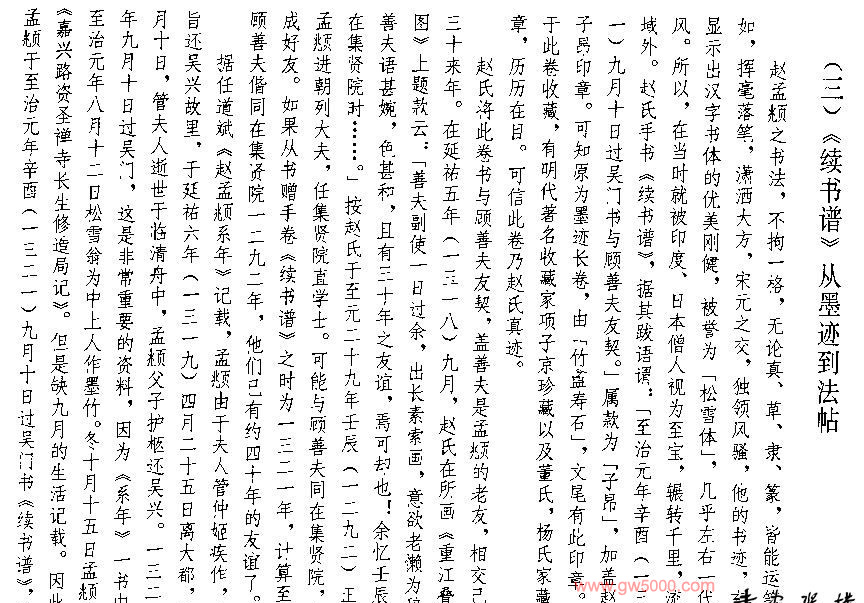 （三）《续书谱》从墨迹到法帖
赵孟頫之书法，不拘一格，无论真、草、隶、篆，皆能运笔
如，挥毫落笔，潇洒大方，宋元之交，独领风骚，他的书迹，
显示出汉字书体的优美刚健，被誉为「松雪体」，几乎左右一代
风。所以，在当时就被印度、日本僧人视为至宝，辗转千里，
域外。赵氏手书《续书谱》，据其跋语谓：「至治元年辛酉（一三
一）九月十日过吴门书与顾善夫友契。」属款为「子昂」，如盖赵
子昂印章。可知原为墨迹长卷，由「竹孟寿石」，文尾有此印章。
于此卷收藏，有明代著名收藏家项子京珍藏以及董氏，杨氏家藏
章，历历在目。可信此卷乃赵氏真迹。
赵氏将此卷书与顾善夫友契，盖善夫是孟頫的老友，相交已
三十来年。在延祐五年（一三一八）九月，赵氏在所画《重江叠
图》上题款云：「善夫副使一日过余，出长素索画，意欲老懒为
善夫语甚婉，色甚和，且有三十年之友谊，焉可却也！余忆壬辰
在集贤院时……。」按赵氏于至元二十九年壬辰（一二九二）正
孟頫进朝列大夫，任集贤院直学士。可能与顾善夫同在集贤院，
成好友。如果从书赠手卷《续书谱》之时为一三二一年，计算至
顾善夫偕同在集贤院一二九二年，他们已有约四十年的友谊了。
据任道斌《赵孟頫系年》记载，孟頫由于夫人管仲姬疾作，
旨还吴兴故里，于延祐六年（一三一九）四月二十五日离大都，
月十日，管夫人逝世于临清舟中，孟頫父子护柩还吴兴。一三二
年九月十日过吴门，这是非常重要的资料，因为《系年》一书中
至治元年八月十二日松雪翁为中上人作墨竹。冬十月十五日孟頫
《嘉兴路资圣禅寺长生修造局记》。但是缺九月的生活记载。因此
孟頫于至治元年辛酉（一三二一）九月十日过吴门书《续书谱》，
www.gw5000.com